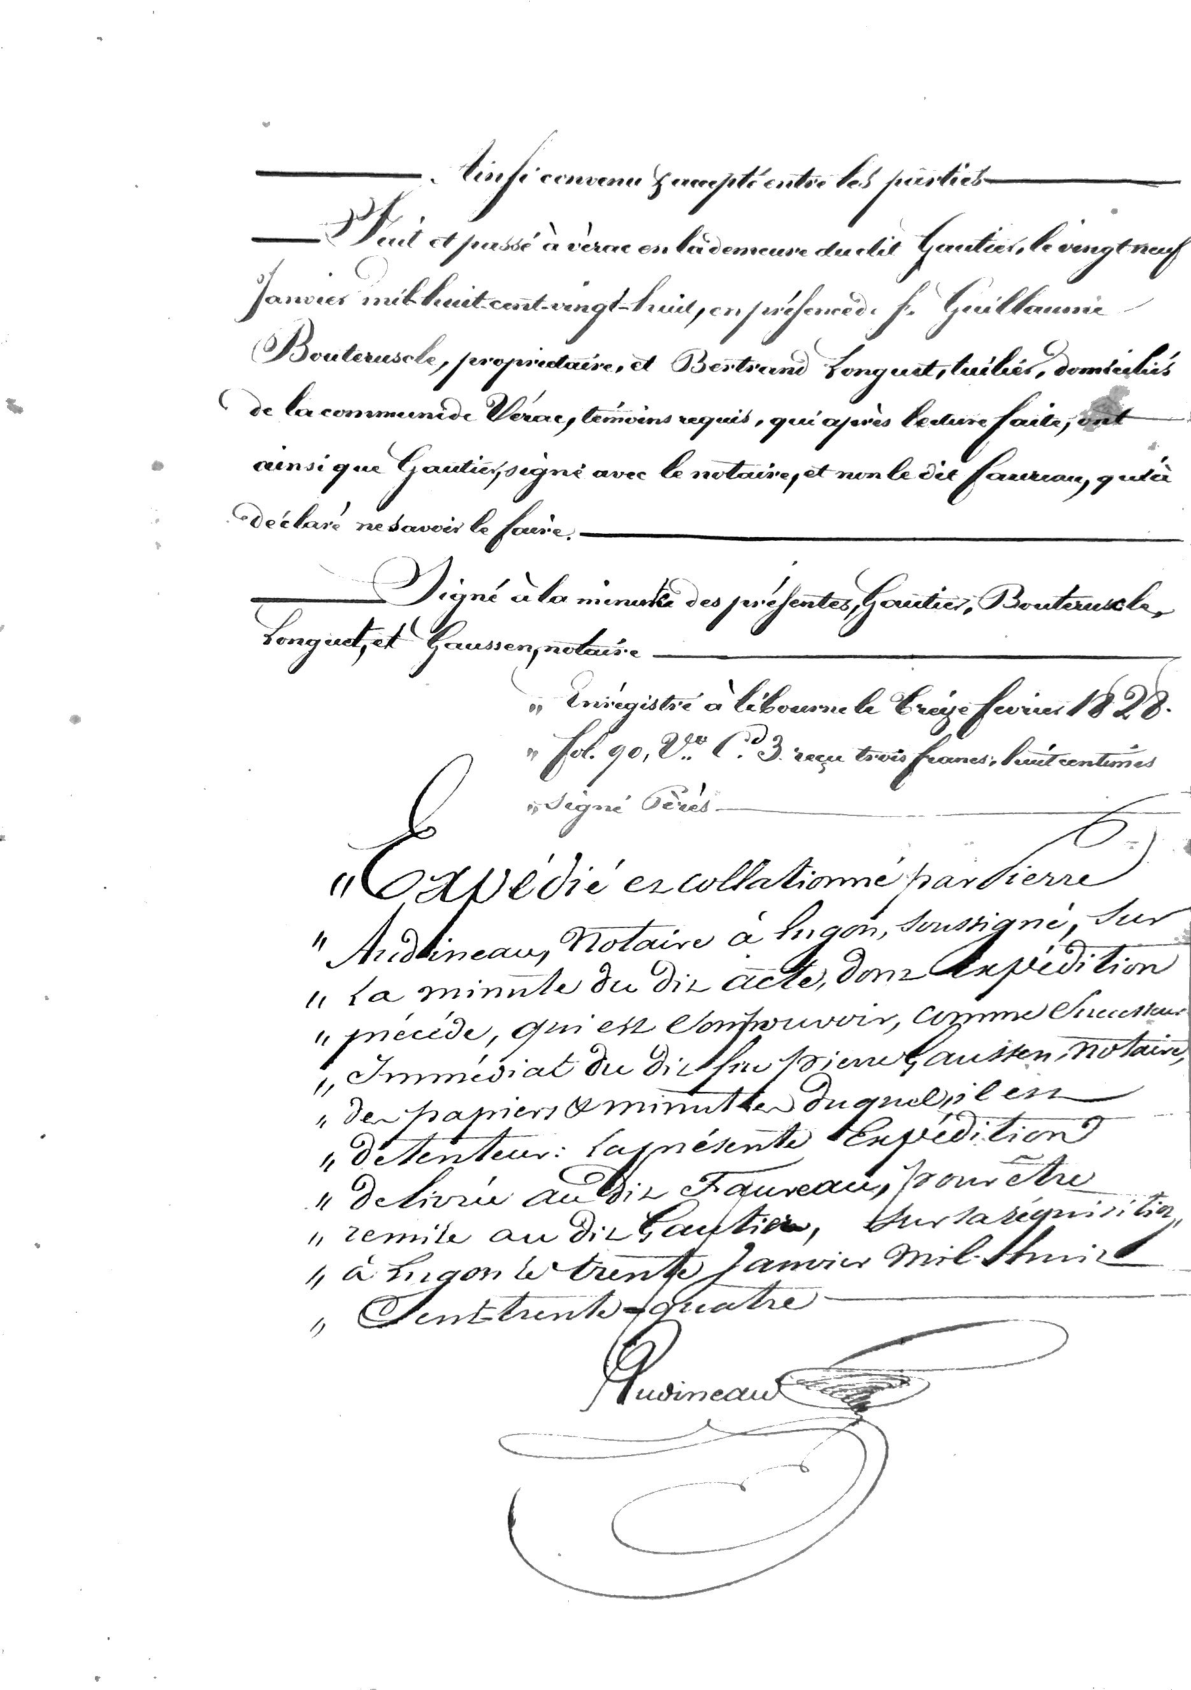 Ainsi convenu & accepté entre les parties
Fait et passé à vérac en la demeure du dit Gautier, le vingt neuf
Janvier mil-huit-cent-vingt-huit, en présence de s.r Guillaume
Bouteruscle, propriétaire, et Bertrand Longuet, tuilier, domiciliés
de la commune de Vérac, témoins requis, qui après lecture faite, ont
ainsi que Gautier, signé avec le notaire, et non le dit Faureau, qui a
déclaré ne savoir le faire.
Signé à la minute des présentes, Gautier, Bouteruscle,
Longuet, et Gaussen, notaire
" Enrégistré à libourne le treize fevrier 1828.
" fol. 90, V.o C.d 3. reçu trois francs, huit centimes
" signé Pérès
" Expédié et collationné par Pierre
" Audineau, Notaire à Lugon, soussigné, sur
" La minute du dit acte, dont Expédition
" précéde, qui est en son pouvoir, comme Successeur
" Immédiat du dit feu pierre Gaussen, notaire,
" des papiers & minutes duquel, il est
" detenteur: la présente Expédition
" delivrée au dit Faureau, pour être
" remise au dit Gautier, sur sa réquisition,
" à Lugon le trente Janvier Mil-huit
" Cent-trente-quatre
Audineau